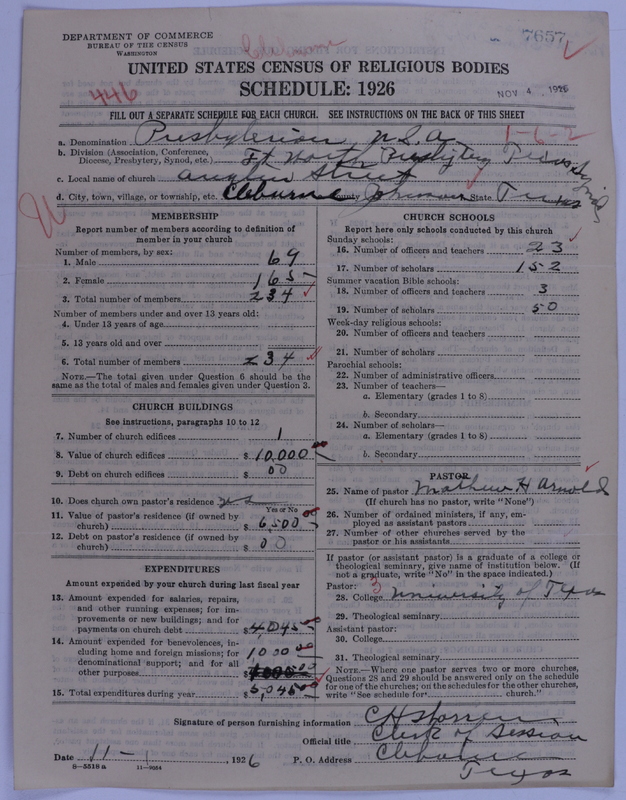 DEPARTMENT OF COMMERCE
BUREAU OF THE CENSUS
WASHINGTON
7657
UNITED STATES CENSUS OF RELIGIOUS BODIES
SCHEDULE: 1926
446
NOV 4 1926
FILL OUT A SEPARATE SCHEDULE FOR EACH CHURCH. SEE INSTRUCTIONS ON THE BACK OF THIS SHEET
1-6-2
a. Denomination Presbyterian U.S.A.
b. Division (Association, Conference, Diocese, Presbytery, Synod, etc.) Ft Worth Presbytery Texas Synod
c. Local name of church Anglin Street
d. City, town, village, or township, etc. Cleburne County Johnson State Texas
MEMBERSHIP
Report number of members according to definition of member in your church
Number of members, by sex:
1. Male 69
2. Female 165
3. Total number of members 234
Number of members under and over 13 years old:
4. Under 13 years of age
5. 13 years old and over
6. Total number of members 234
NOTE.—The total given under Question 6 should be the same as the total of males and females given under Question 3.
CHURCH BUILDINGS
See instructions, paragraphs 10 to 12
7. Number of church edifices 1
8. Value of church edifices $ 10,000 00
9. Debt on church edifices $ 00
10. Does church own pastor's residence yes
Yes or No
11. Value of pastor's residence (if owned by church) $ 6,500 00
12. Debt on pastor's residence (if owned by church) $ 00
EXPENDITURES
Amount expended by your church during last fiscal year
13. Amount expended for salaries, repairs, and other running expenses; for improvements or new buildings; and for payments on church debt $ 4,045 00
14. Amount expended for benevolences, including home and foreign missions; for denominational support; and for all other purposes 1000 00
15. Total expenditures during year $ 5,045 00
CHURCH SCHOOLS
Report here only schools conducted by this church
Sunday schools:
16. Number of officers and teachers 23
17. Number of scholars 152
Summer vacation Bible schools:
18. Number of officers and teachers 3
19. Number of scholars 50
Week-day religious schools:
20. Number of officers and teachers
21. Number of scholars
Parochial schools:
22. Number of administrative officers
23. Number of teachers—
a. Elementary (grades 1 to 8)
b. Secondary
24. Number of scholars—
a. Elementary (grades 1 to 8)
b. Secondary
PASTOR
25. Name of pastor Mathew H Arnold
(If church has no pastor, write "None")
26. Number of ordained ministers, if any, employed as assistant pastors
27. Number of other churches served by the pastor or his assistants
If pastor (or assistant pastor) is a graduate of a college or theological seminary, give name of institution below. (If not a graduate, write "No" in the space indicated.)
Pastor: 3
28. College University of Texas
29. Theological seminary
Assistant pastor:
30. College
31. Theological seminary
NOTE.—Where one pastor serves two or more churches, Questions 28 and 29 should be answered only on the schedule for one of the churches; on the schedules for the other churches, write "See schedule for church."
Signature of person furnishing information C H
Official title Clerk of Session
Date 11-1, 1926 P. O. Address Cleburne
Texas
8-5518 a 11-9254